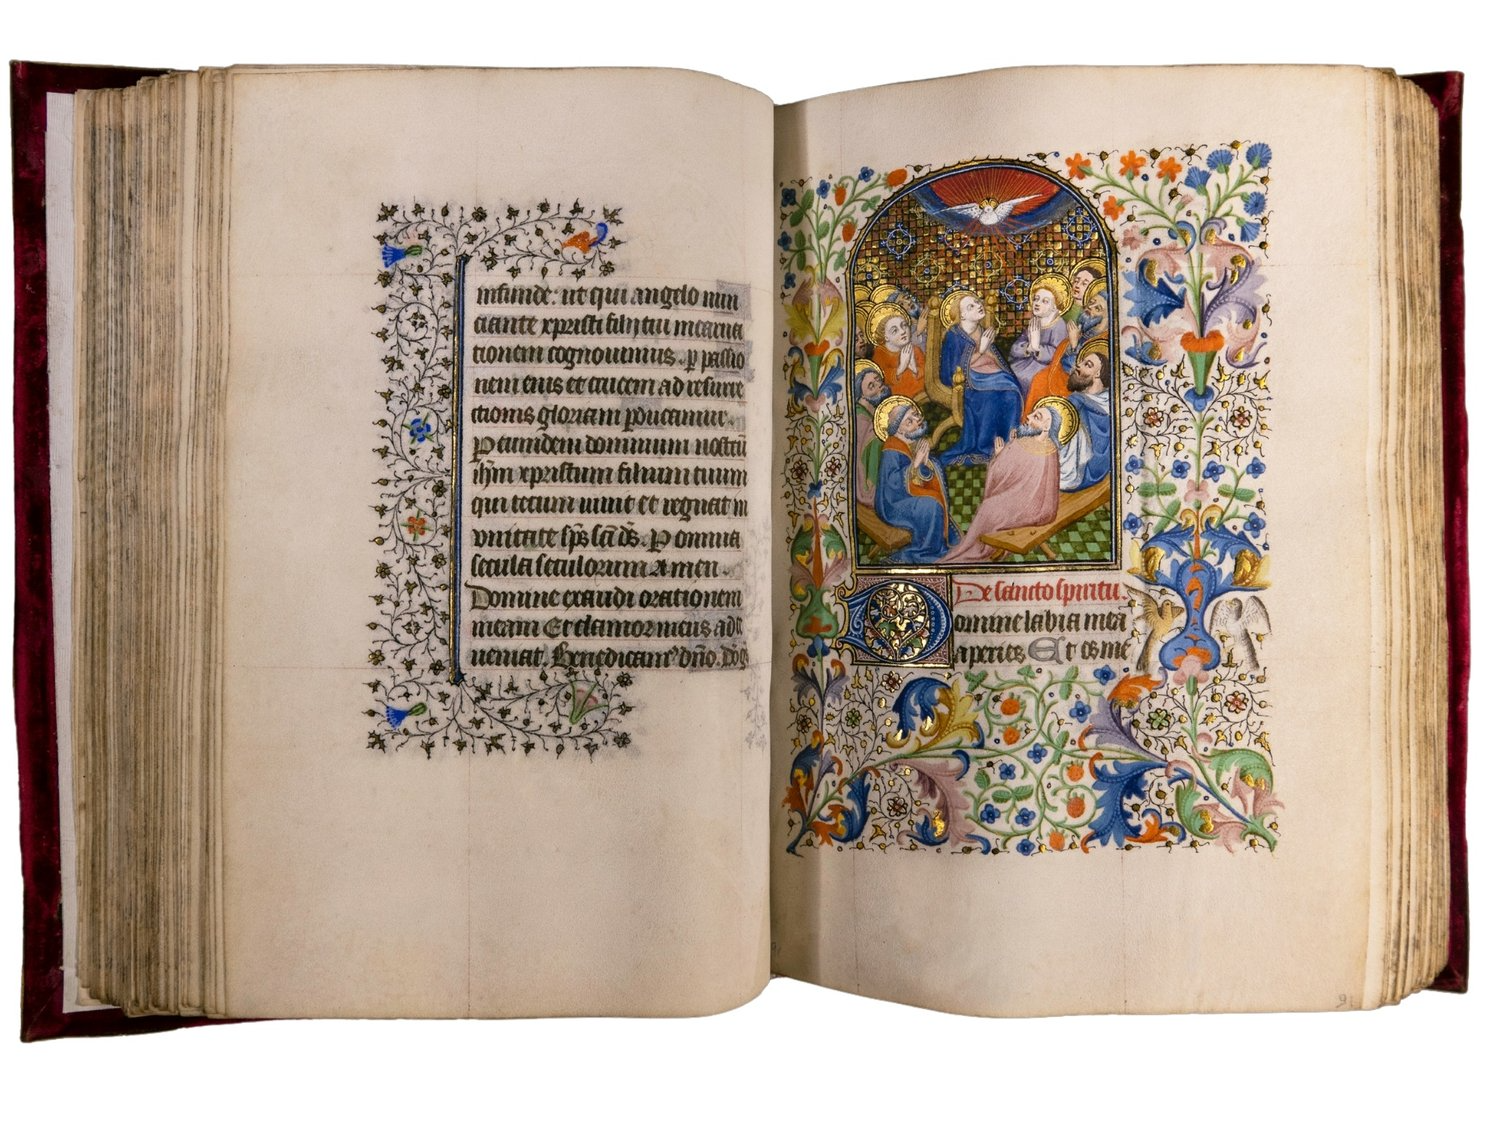 infunde: ut qui angelo nun
ciante xpristi filij tui incarna
tionem cognouimus. p passio
nem eius et crucem ad resurre
ctionis gloriam pducamur.
P eumdem dominum nostrū
ihm xpristum filium tuum
qui tecum uiuit et regnat in
vnitate sps scī ds. P omnia
secula seculorum Amen
Domine exaudi orationem
meam Et clamor meus ad te
ueniat. Benedicam² dno.
De sancto spiritu.
Domine labia mea
aperies Et os me